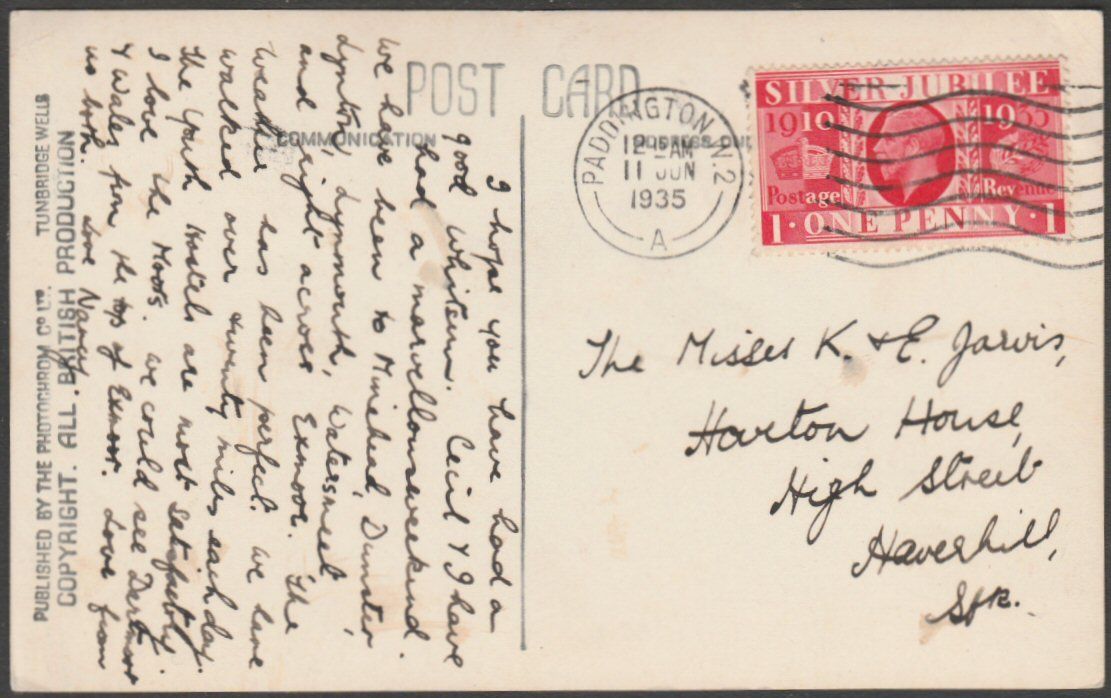 POST CARD
COMMUNICATION
ADDRESS ONLY
PADDINGTON. W.2
12 - AM
11 JUN
1935
A
SILVER JUBILEE
1910 1935
Postage Revenue
1 · ONE PENNY · 1
I hope you have had a
good Whitsun. Cecil & I have
had a marvellous weekend.
We have been to Minehead, Dunster,
Lynton, Lynmouth, Watersmeet
and right across Exmoor. The
weather has been perfect. We have
walked over twenty miles each day.
The Youth Hostels are most satisfactory.
I love the Moors. We could see Dartmoor
& Wales from the top of Exmoor. Love from
us both. Love Nancy.
The Misses K. & E. Jarvis,
Harton House,
High Street
Haverhill,
Sfk.
PUBLISHED BY THE PHOTOCHROM CO LTD. TUNBRIDGE WELLS
COPYRIGHT. ALL BRITISH PRODUCTION